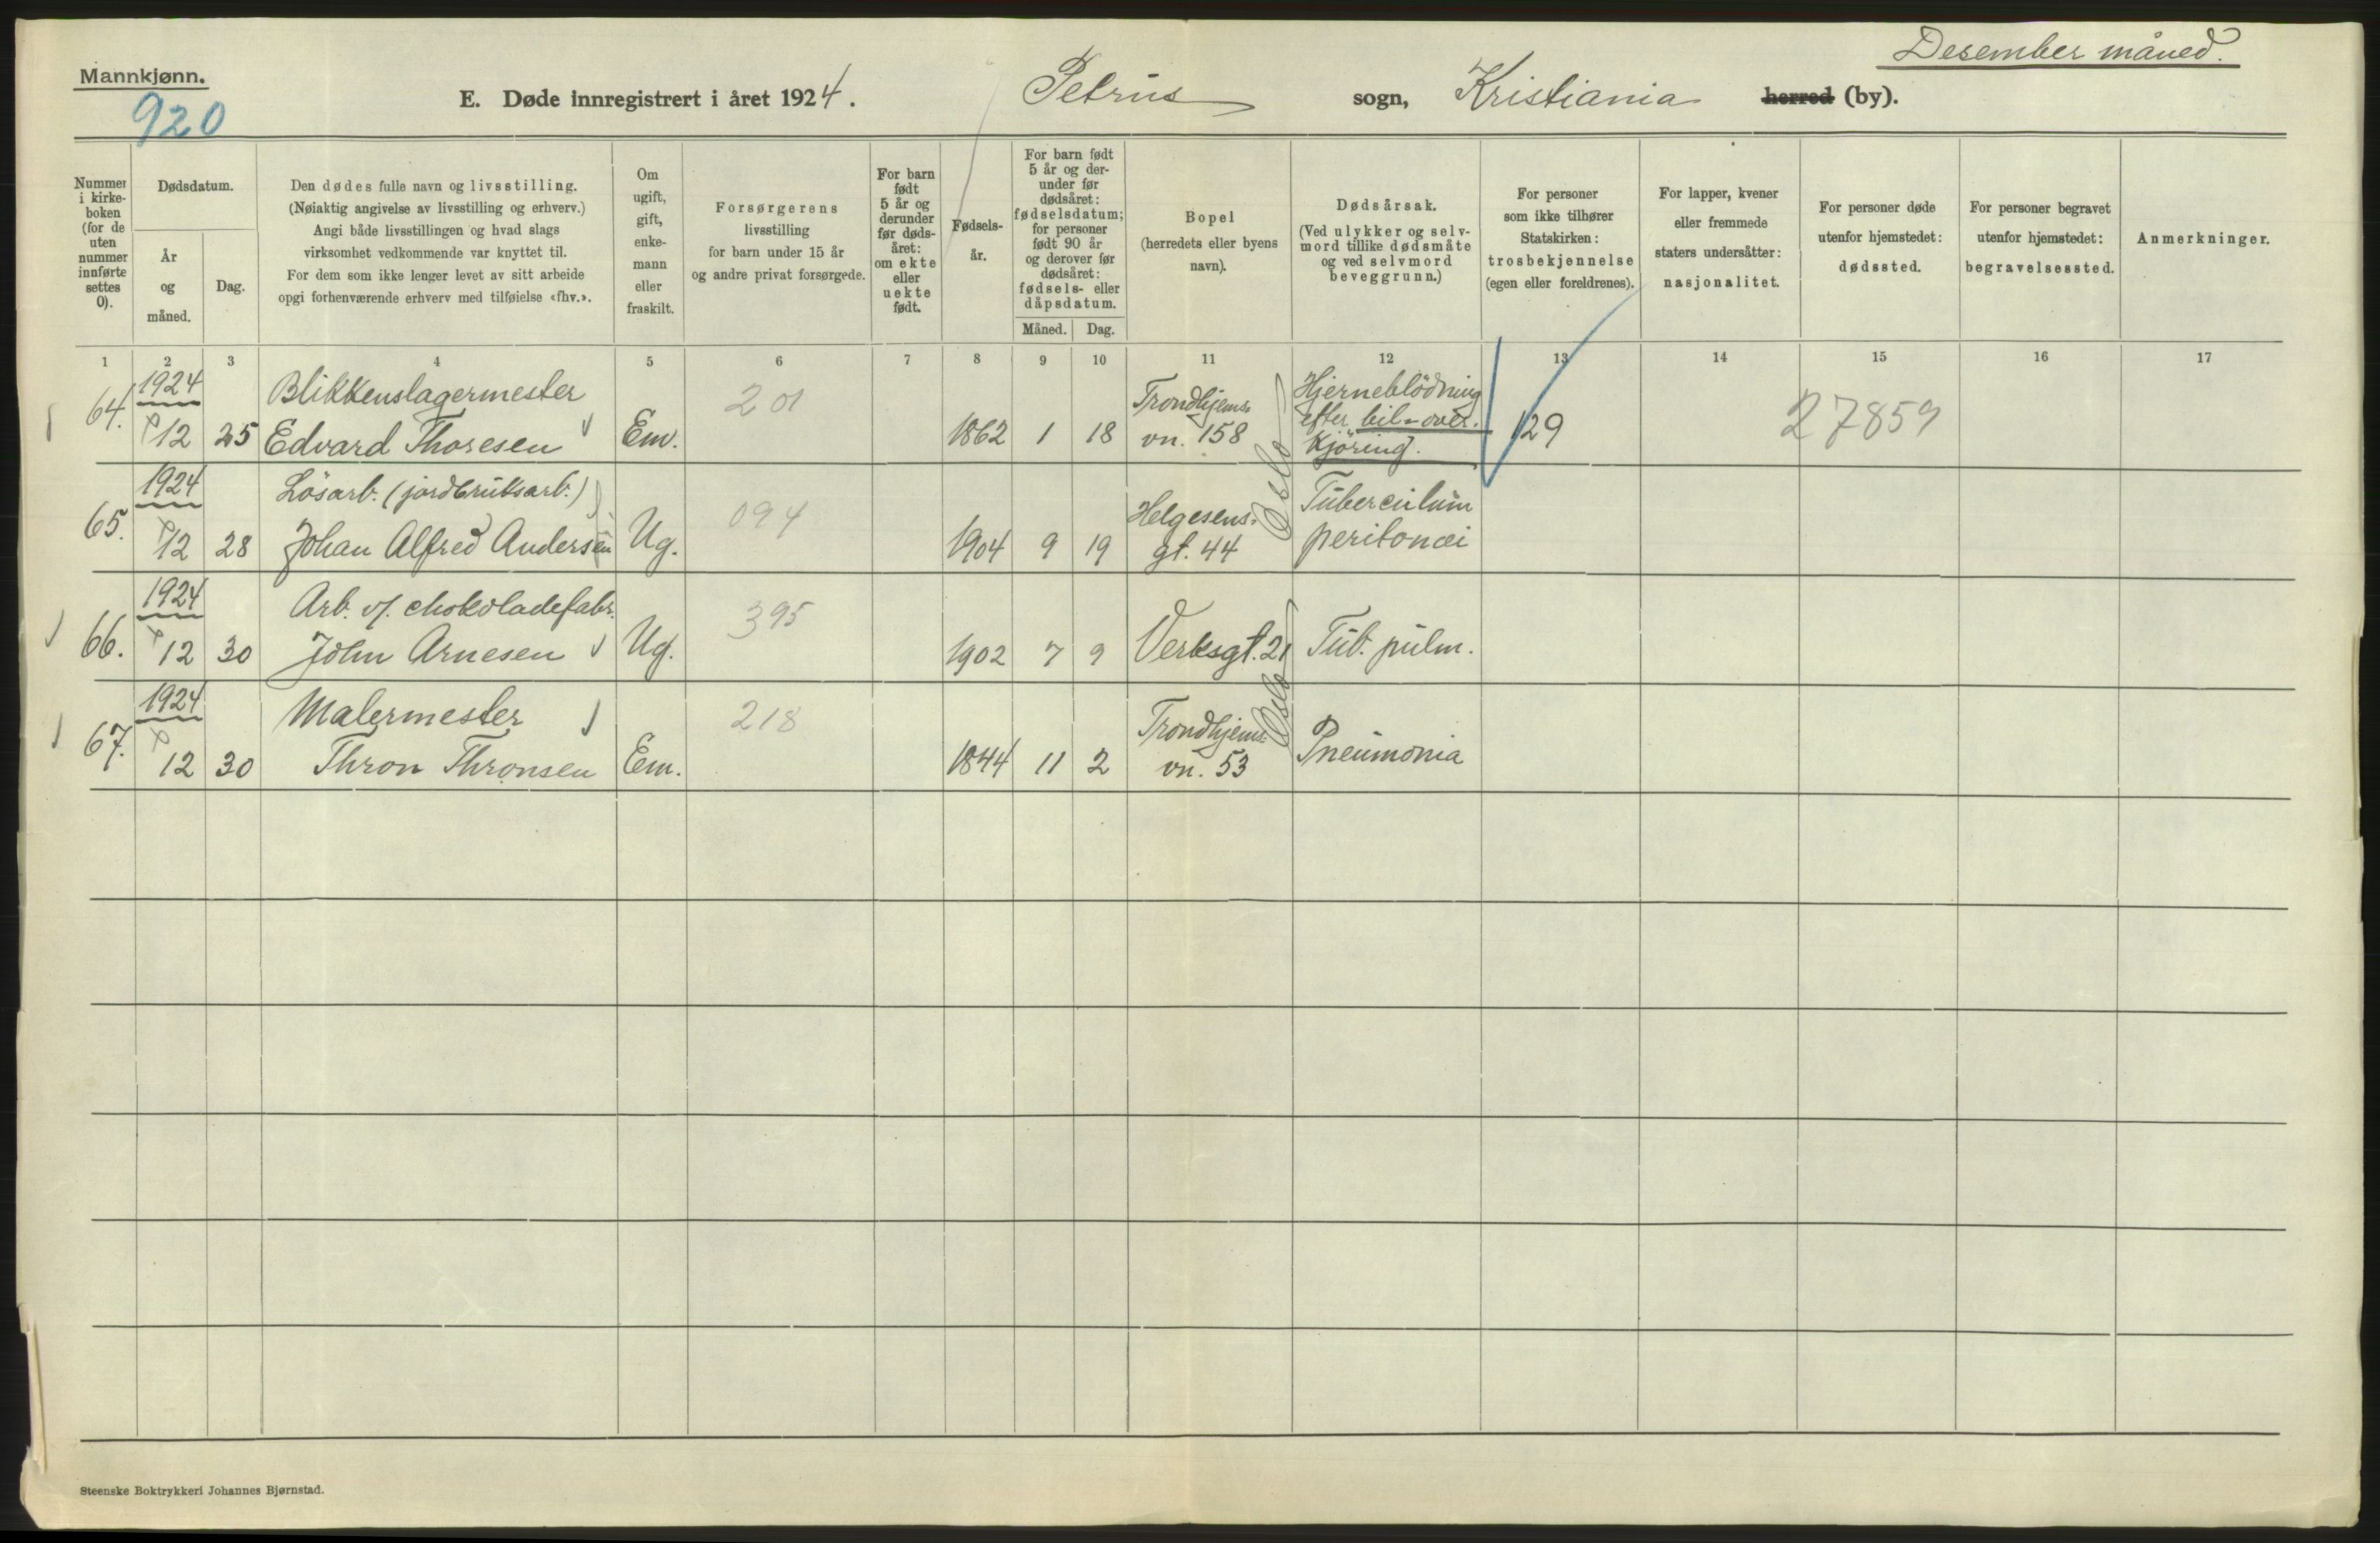 Desember måned.
Mannkjønn.
920
E. Døde innregistrert i året 1924. Petrus sogn, Kristiania herred (by).
Nummer i kirke-boken (for de uten nummer innførte settes 0).
Dødsdatum.
År og måned.
Dag.
Den dødes fulle navn og livsstilling.
(Nøiaktig angivelse av livsstilling og erhverv.)
Angi både livsstillingen og hvad slags
virksomhet vedkommende var knyttet til.
For dem som ikke lenger levet av sitt arbeide
opgi forhenværende erhverv med tilføielse «fhv.».
Om ugift, gift, enke-mann eller fraskilt.
Forsørgerens
livsstilling
for barn under 15 år
og andre privat forsørgede.
For barn født 5 år og derunder før døds-året: om ekte eller uekte født.
Fødsels-år.
For barn født 5 år og der-under før dødsåret: fødselsdatum; for personer født 90 år og derover før dødsåret: fødsels- eller dåpsdatum.
Måned. Dag.
Bopel
(herredets eller byens
navn).
Dødsårsak.
(Ved ulykker og selv-
mord tillike dødsmåte
og ved selvmord
beveggrunn.)
For personer
som ikke tilhører
Statskirken:
trosbekjennelse
(egen eller foreldrenes).
For lapper, kvener
eller fremmede
staters undersåtter:
nasjonalitet.
For personer døde
utenfor hjemstedet:
dødssted.
For personer begravet
utenfor hjemstedet:
begravelsessted.
Anmerkninger.
1 2 3 4 5 6 7 8 9 10 11 12 13 14 15 16 17
1924 Blikkenslagermester 201 Trondhjems- Hjerneblödning
64. 12 25 Edvard Thoresen Em. 1862 1 18 vn. 158 efter bil-over-
kjöring. 129 27859
Oslo
1924 Lösarb. (jordbruksarb.) 094 Helgesens- Tuberculum
65. 12 28 Johan Alfred Andersen Ug. 1904 9 19 gt. 44 peritonæi
1924 Arb. v/. chokoladefabr. 395
66. 12 30 John Arnesen Ug. 1902 7 9 Verksgt. 21 Tub. pulm.
Oslo
1924 Malermester 218 Trondhjems-
67. 12 30 Thron Thronsen Em. 1844 11 2 vn. 53 Pneumonia
Steenske Boktrykkeri Johannes Bjørnstad.